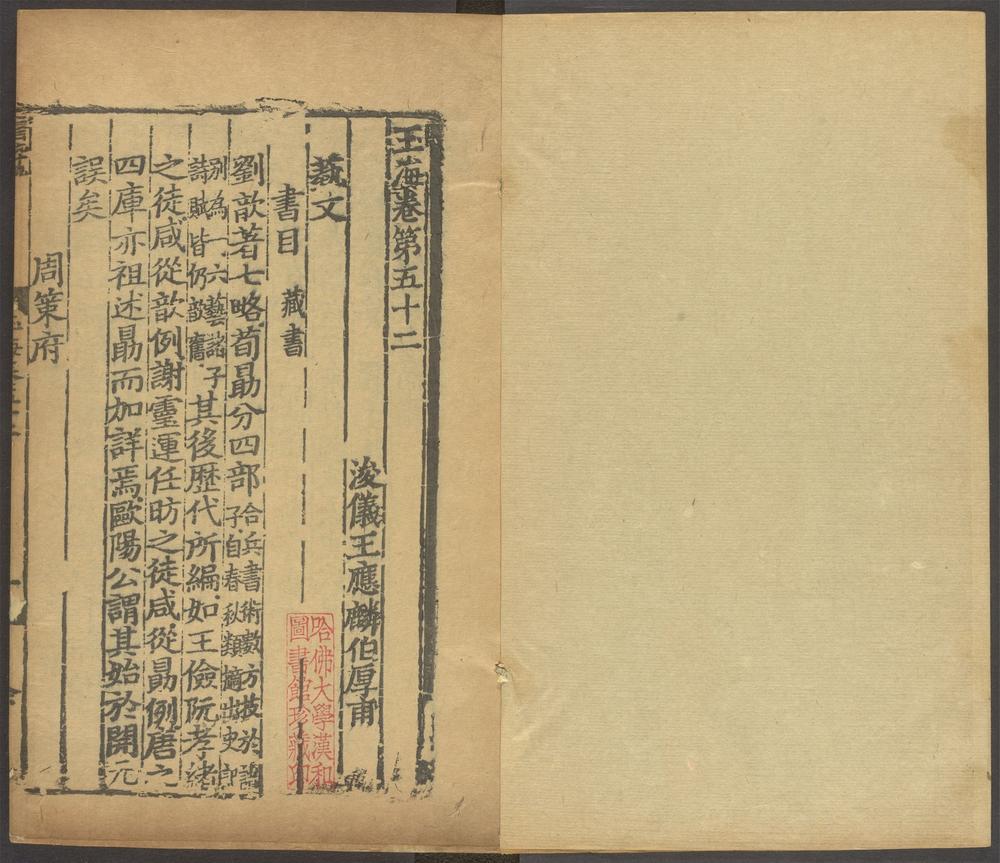 玉海卷第五十二
浚儀王應麟伯厚甫
藝文
書目 藏書
劉歆著七略荀勗分四部合兵書術數方技於諸
子自春秋類摘出史部
別為一六藝諸子
詩賦皆仍歆舊其後歷代所編如王儉阮孝緒
之徒咸從歆例謝靈運任昉之徒咸從勗例唐之
四庫亦祖述勗而加詳焉歐陽公謂其始於開元
誤矣
周策府
哈佛大學漢和
圖書館珍藏印